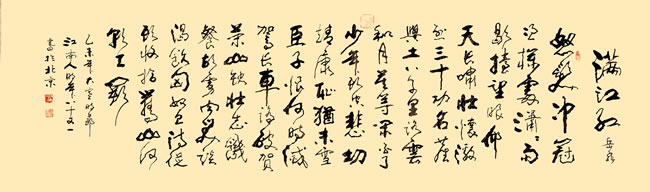 满江红 岳飞
怒髮冲冠
凭栏处潇潇雨
歇抬望眼仰
天长啸壮怀激
烈三十功名尘
與土八千里路雲
和月莫等闲白了
少年头空悲切
靖康耻猶未雪
臣子恨何时滅
驾长車踏破贺
兰山缺壮志饑
餐胡虏肉笑谈
渴饮匈奴血待從
头收拾舊山河
朝天阙
乙未年大雪时节
江南人时年八十五
書於北京